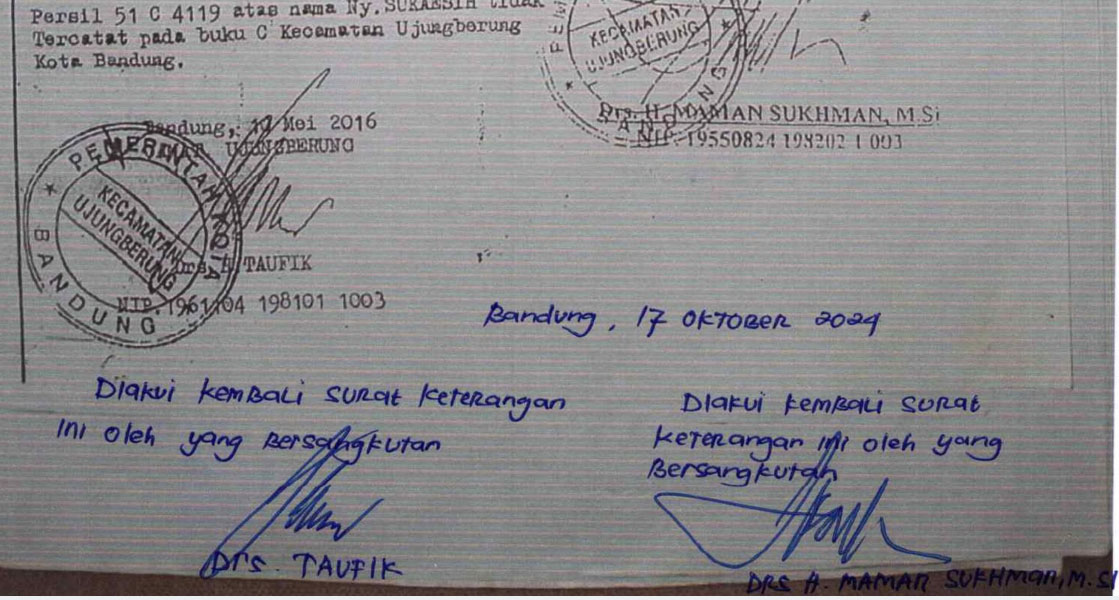 Persil 51 C 4119 atas nama Ny. SUKAESIH tidak
Tercatat pada buku C Kecamatan Ujungberung
Kota Bandung.
KECAMATAN
UJUNGBERUNG
BANDUNG
Drs. H. MAMAN SUKHMAN, M.Si
NIP. 19550824 198202 1 003
Bandung, 17 Mei 2016
UJUNGBERUNG
PEMERINTAH KOTA
KECAMATAN
UJUNGBERUNG
BANDUNG
Drs H TAUFIK
NIP. 1961 04 198101 1003
Bandung, 17 OKTOBER 2024
Diakui kembali surat keterangan
ini oleh yang Bersangkutan
Drs. TAUFIK
Diakui kembali surat
keterangan ini oleh yang
Bersangkutan
DRS H. MAMAN SUKHMAN, M.SI